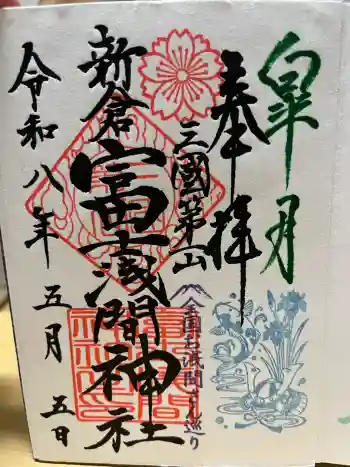 皐月
奉拝
三國第一山
全国お浅間さん巡り
新倉富士浅間神社
令和八年五月五日